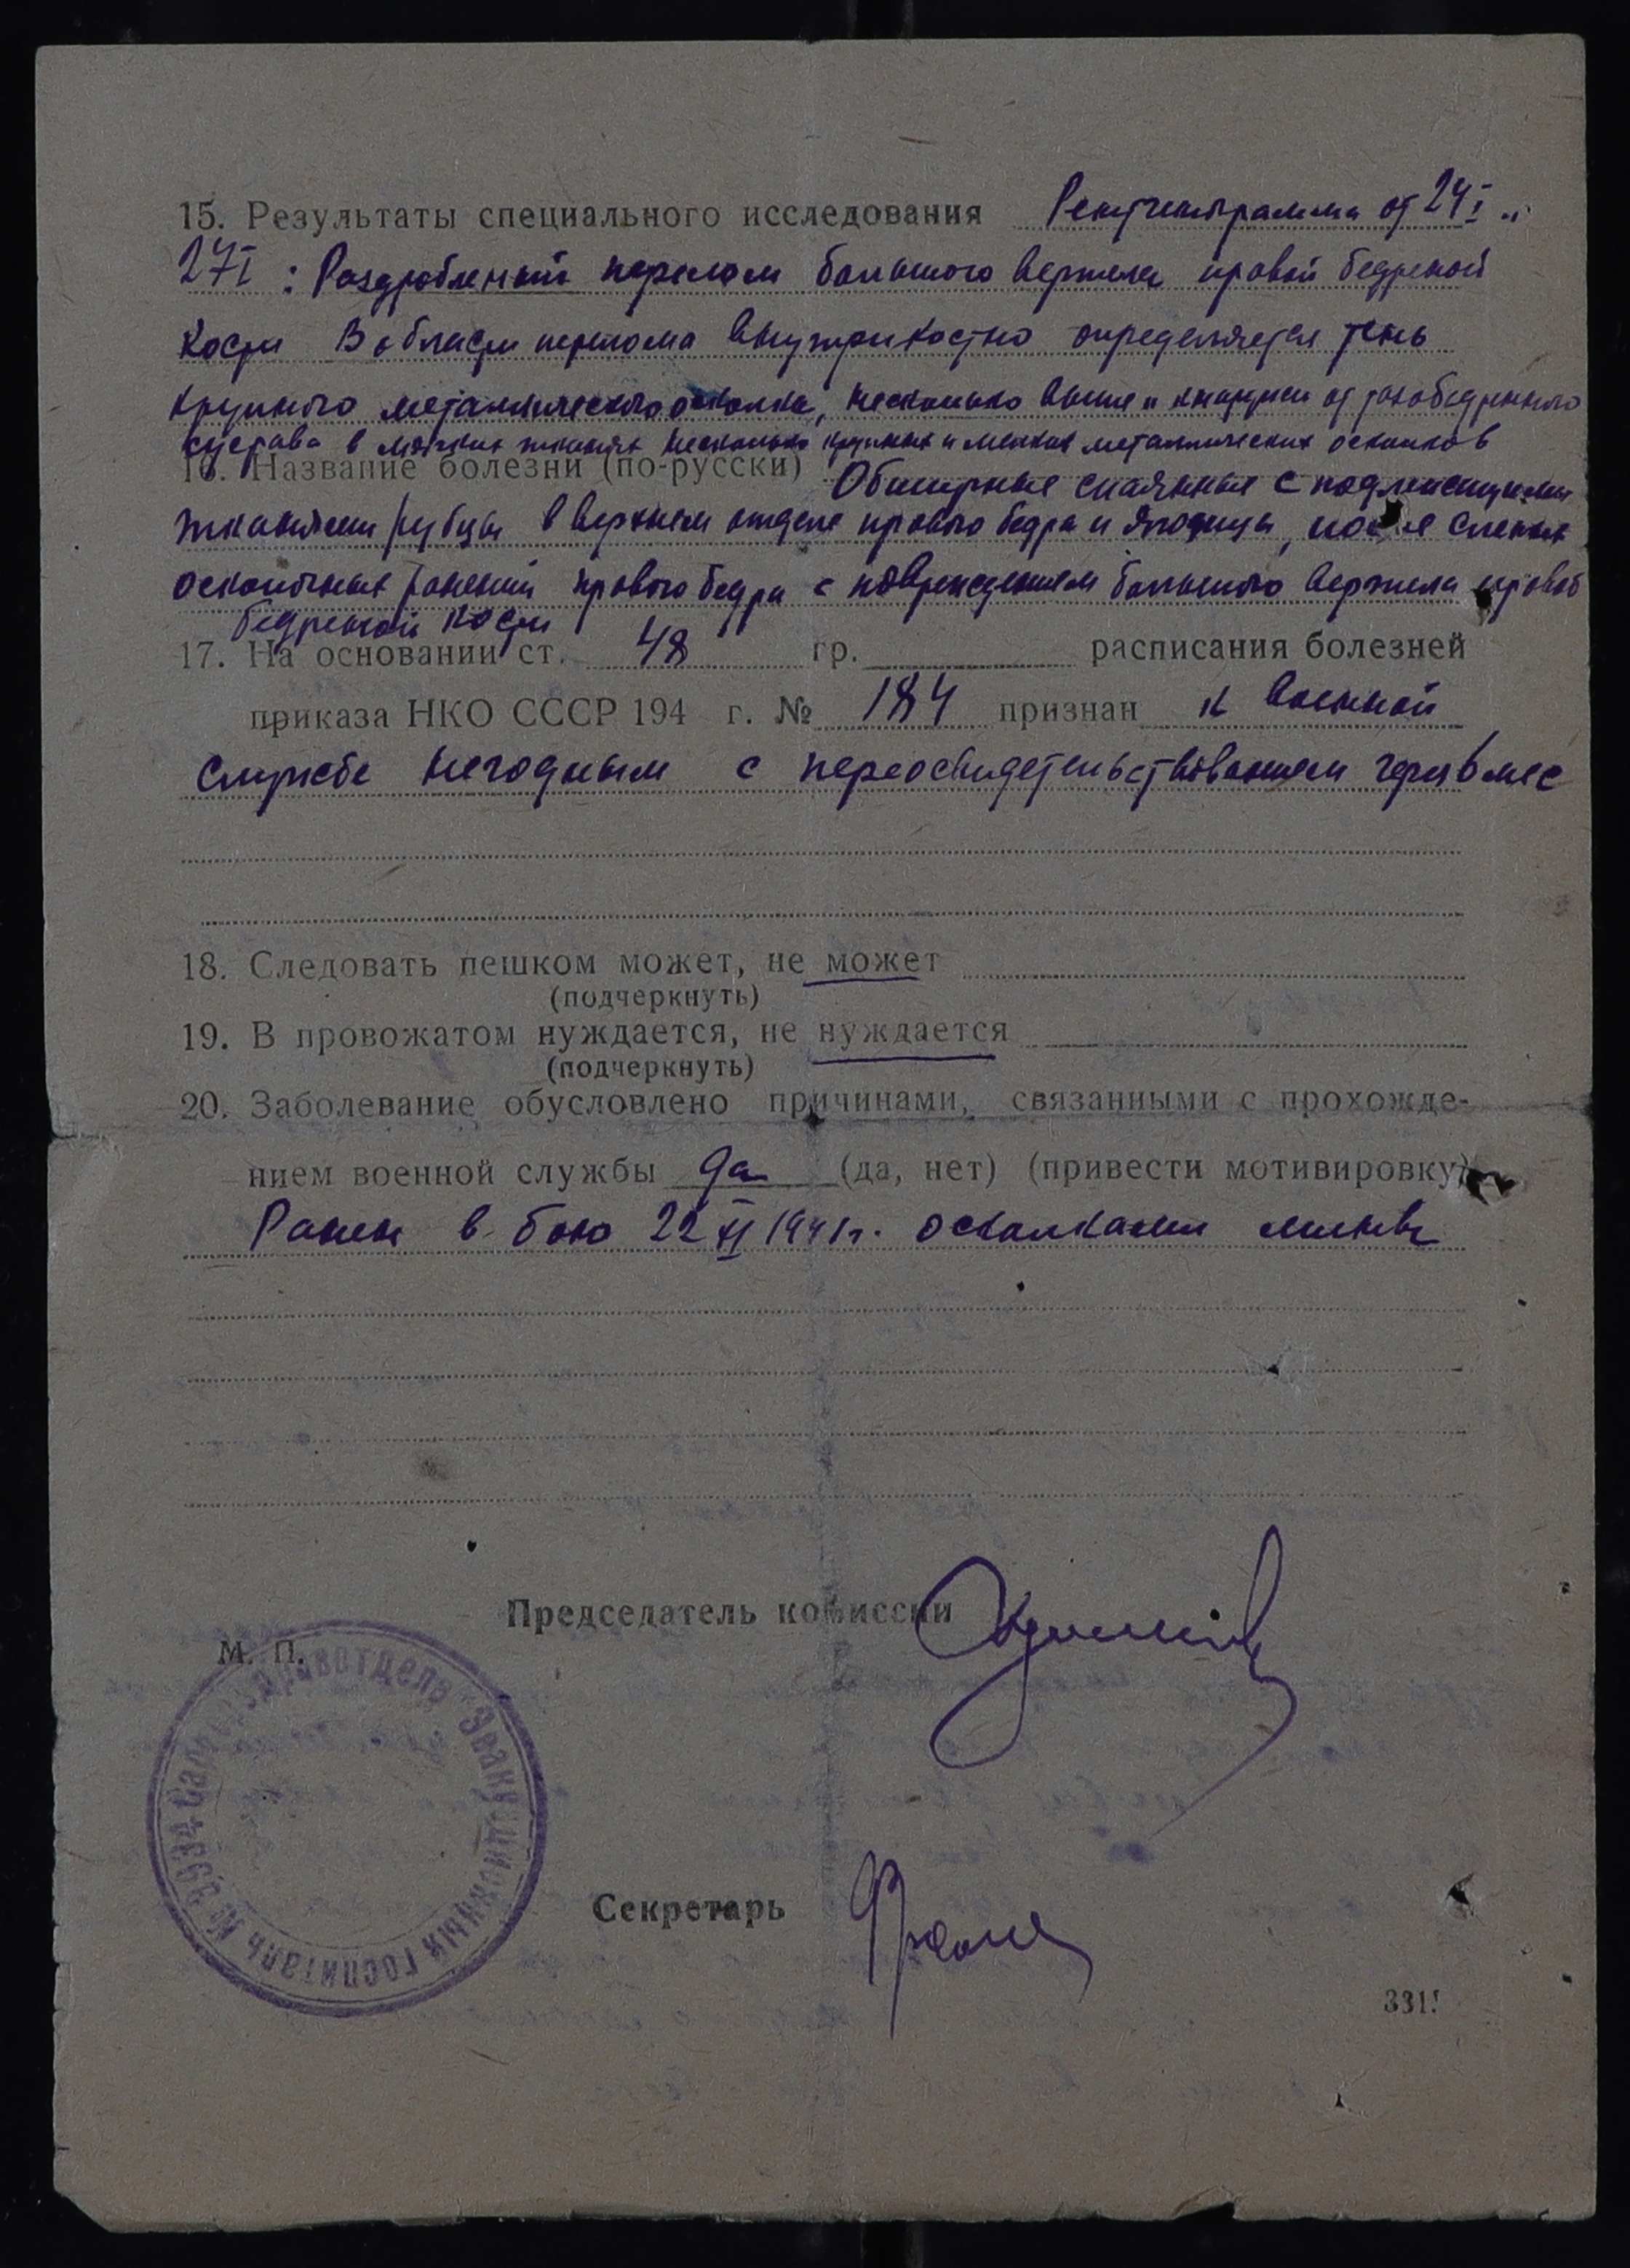 15. Результаты специального исследования Рентгенограмма от 24 I и
27 I : Раздробленный перелом большого вертела правой бедреной
кости В области перелома внутрикостно определяется тень
крупного металлического осколка, несколько выше и кнаружи от тазобедренного
сустава в мягких тканях несколько крупных и мелких металлических осколков
16. Название болезни (по-русски) Обширные спаянные с подлежащими
тканями рубцы в верхнем отделе правого бедра и ягодицы, после слепых
осколочных ранений правого бедра с повреждением большого вертела правой
бедреной кости
17. На основании ст. 48 гр. расписания болезней
приказа НКО СССР 194 г. № 184 признан к военной
службе негодным с переосвидетельствованием через 6 мес
18. Следовать пешком может, не может
(подчеркнуть)
19. В провожатом нуждается, не нуждается
(подчеркнуть)
20. Заболевание обусловлено причинами, связанными с прохожде-
нием военной службы да (да, нет) (привести мотивировку)
Ранен в бою 22 XI 1941 г. осколками мины
Председатель комиссии
М. П.
здравотдель Эвакуационный госпиталь № 3934
Секретарь
331